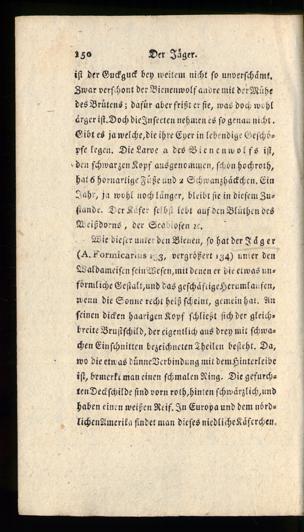 250 Der Jäger.
ist der Guckguck bey weitem nicht so unverschämt.
Zwar verschont der Bienenwolf andre mit der Mühe
des Brütens; dafür aber frißt er sie, was doch wohl
ärger ist. Doch die Insecten nehmen es so genau nicht.
Gibt es ja welche, die ihre Eyer in lebendige Geschö-
pfe legen. Die Larve a des Bienenwolfs ist,
den schwarzen Kopf ausgenommen, schön hochroth,
hat 6 hornartige Füße und 2 Schwanzhäckchen. Ein
Jahr, ja wohl noch länger, bleibt sie in diesem Zu-
stande. Der Käfer selbst lebt auf den Blüthen des
Weißdorns, der Scabiosen ꝛc.
Wie dieser unter den Bienen, so hat der Jäger
(A. Formicarius 133, vergrößert 134) unter den
Waldameisen sein Wesen, mit denen er die etwas un-
förmliche Gestalt, und das geschäftige Herumlaufen,
wenn die Sonne recht heiß scheint, gemein hat. An
seinen dicken haarigen Kopf schließt sich der gleich-
breite Brustschild, der eigentlich aus drey mit schwa-
chen Einschnitten bezeichneten Theilen besteht. Da,
wo die etwas dünne Verbindung mit dem Hinterleibe
ist, bemerkt man einen schmalen Ring. Die gefurch-
ten Deckschilde sind vorn roth, hinten schwärzlich, und
haben einen weißen Reif. In Europa und dem nörd-
lichen Amerika findet man dieses niedliche Käferchen.